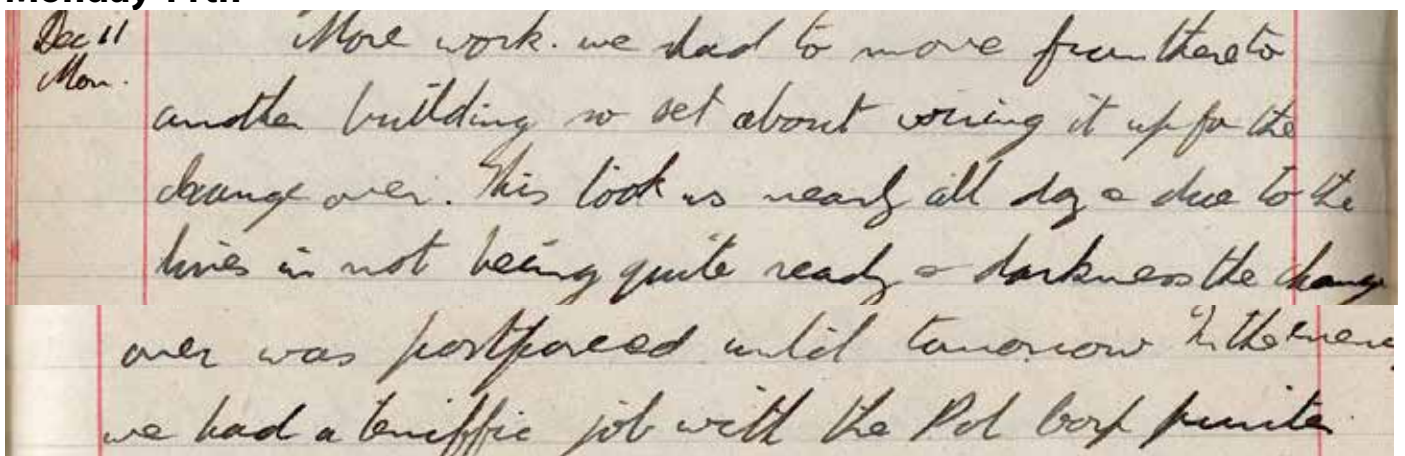 Monday 11th
Dec 11 More work. we had to move from there to
Mon. another building so set about wiring it up for the
change over. This took us nearly all day & due to the
lines in not being quite ready & darkness the change
over was postponed until tomorrow In the
we had a terriffic job with the Pol Corp